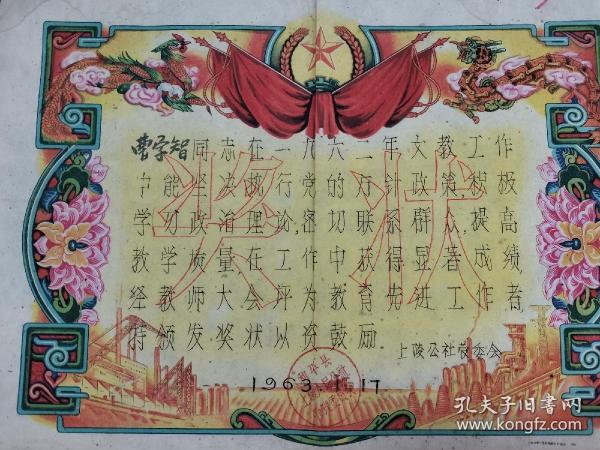 曹学智同志在一九六二年文教工作
中能坚决执行党的方针政策积极
学习政治理论,密切联系群众,提高
教学质量,在工作中获得显著成绩,
经教师大会评为教育先进工作者,
特颁发奖状以资鼓励.
上陵公社管委会
1963.1.17
奖状
孔夫子旧书网
www.kongfz.com